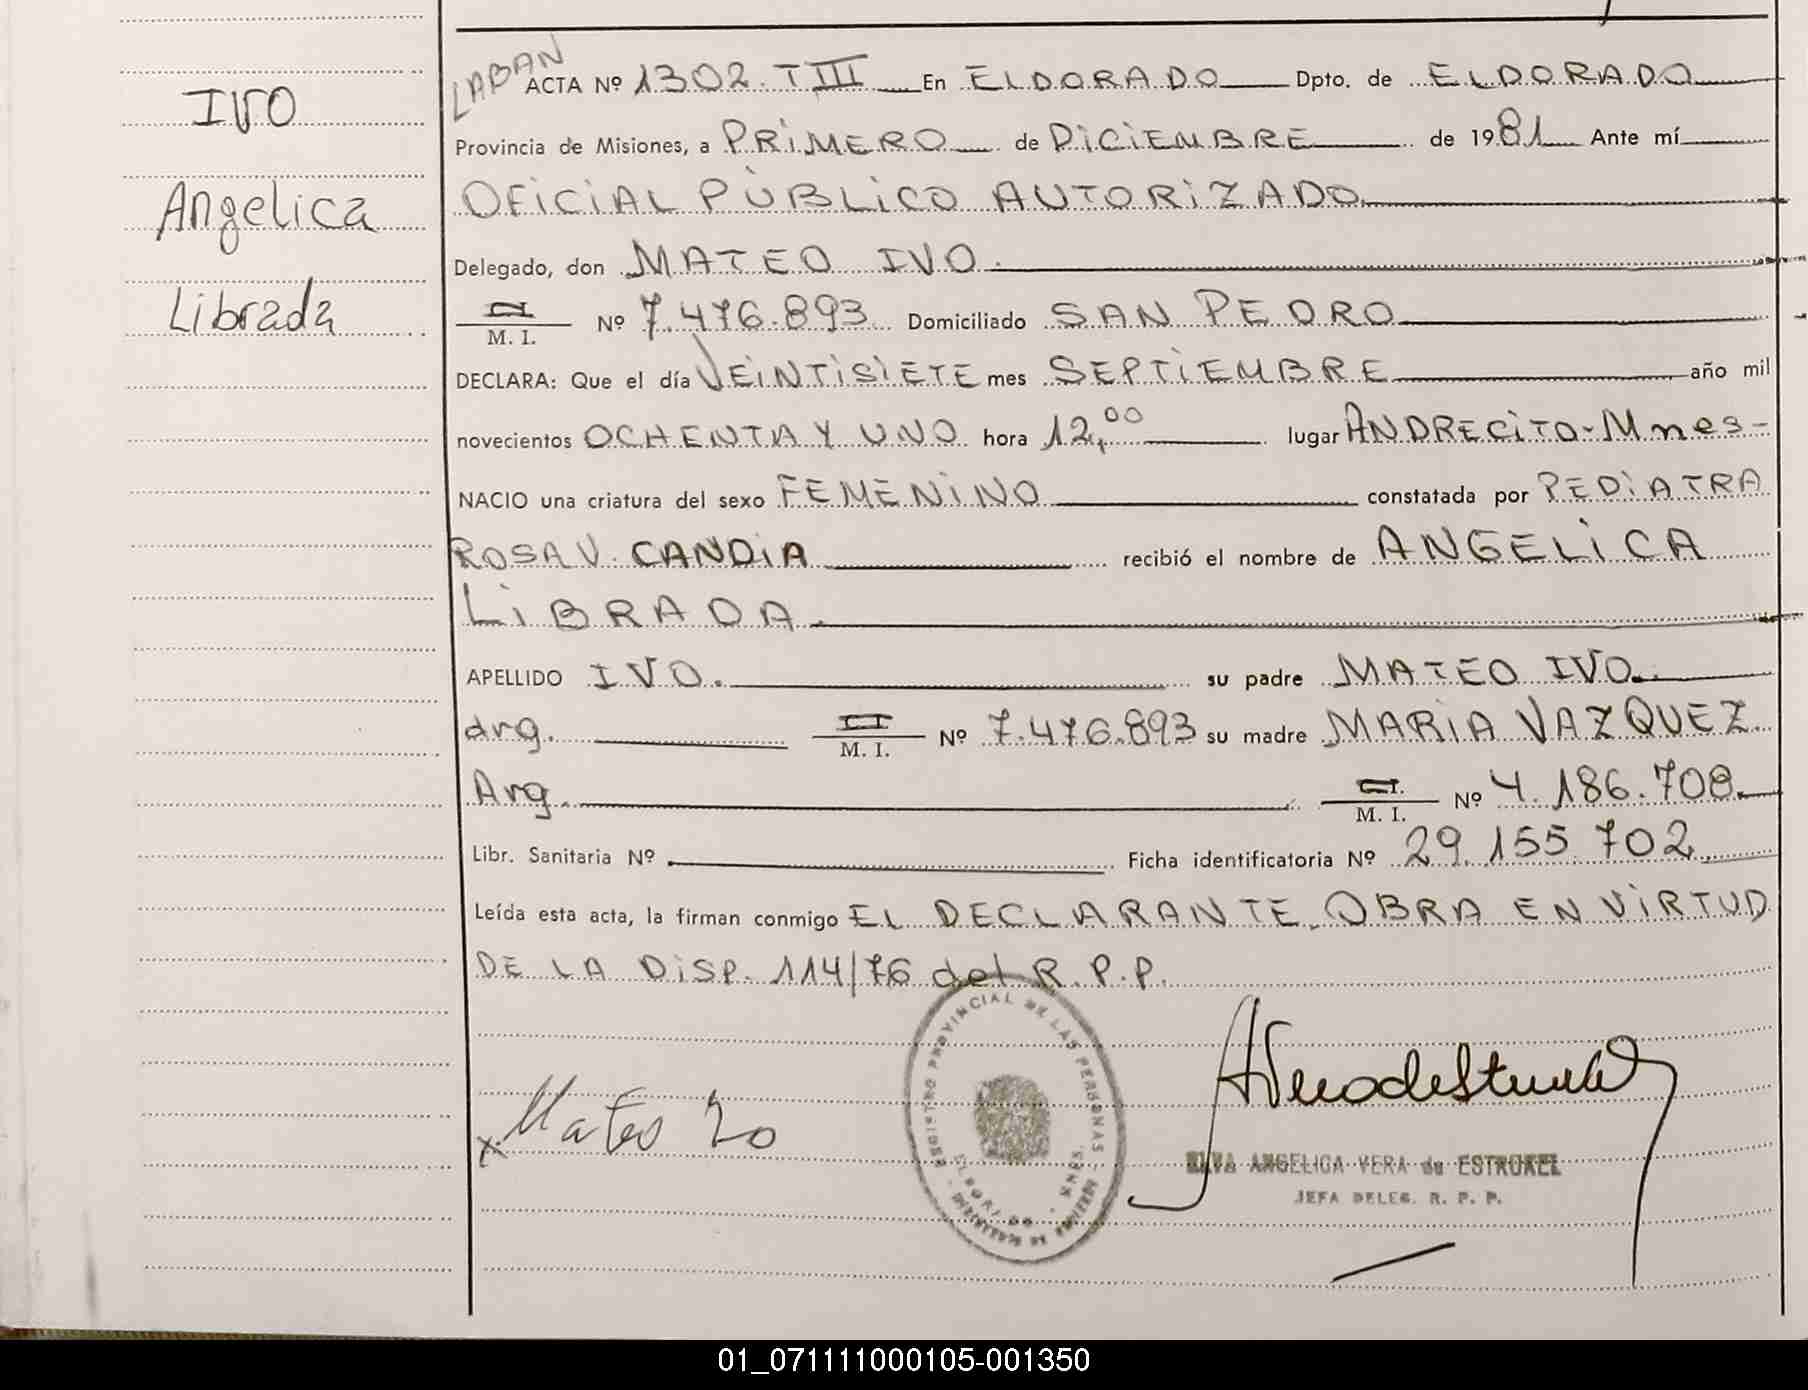 IVO
Angelica
Librada
LABAN
ACTA Nº 1302. T III En ELDORADO Dpto. de ELDORADO
Provincia de Misiones, a PRIMERO de DICIEMBRE de 1981 Ante mí
OFICIAL PÚBLICO AUTORIZADO
Delegado, don MATEO IVO.
M. I. Nº 7.476.893 Domiciliado SAN PEDRO
DECLARA: Que el día VEINTISIETE mes SEPTIEMBRE año mil
novecientos OCHENTA Y UNO hora 12,00 lugar ANDRECITO-Mnes-
NACIO una criatura del sexo FEMENINO constatada por PEDIATRA
ROSA V. CANDIA recibió el nombre de ANGELICA
LIBRADA.
APELLIDO IVO. su padre MATEO IVO.
arg. M. I. Nº 7.476.893 su madre MARIA VAZQUEZ
Arg. M. I. Nº 4.186.708.
Libr. Sanitaria Nº Ficha identificatoria Nº 29.155.702
Leída esta acta, la firman conmigo EL DECLARANTE. OBRA EN VIRTUD
DE LA DISP. 114/76 del R.P.P.
REGISTRO PROVINCIAL DE LAS PERSONAS
x Mateo
ANGELICA VERA de
JEFA DELEG. R. P. P.
01_071111000105-001350